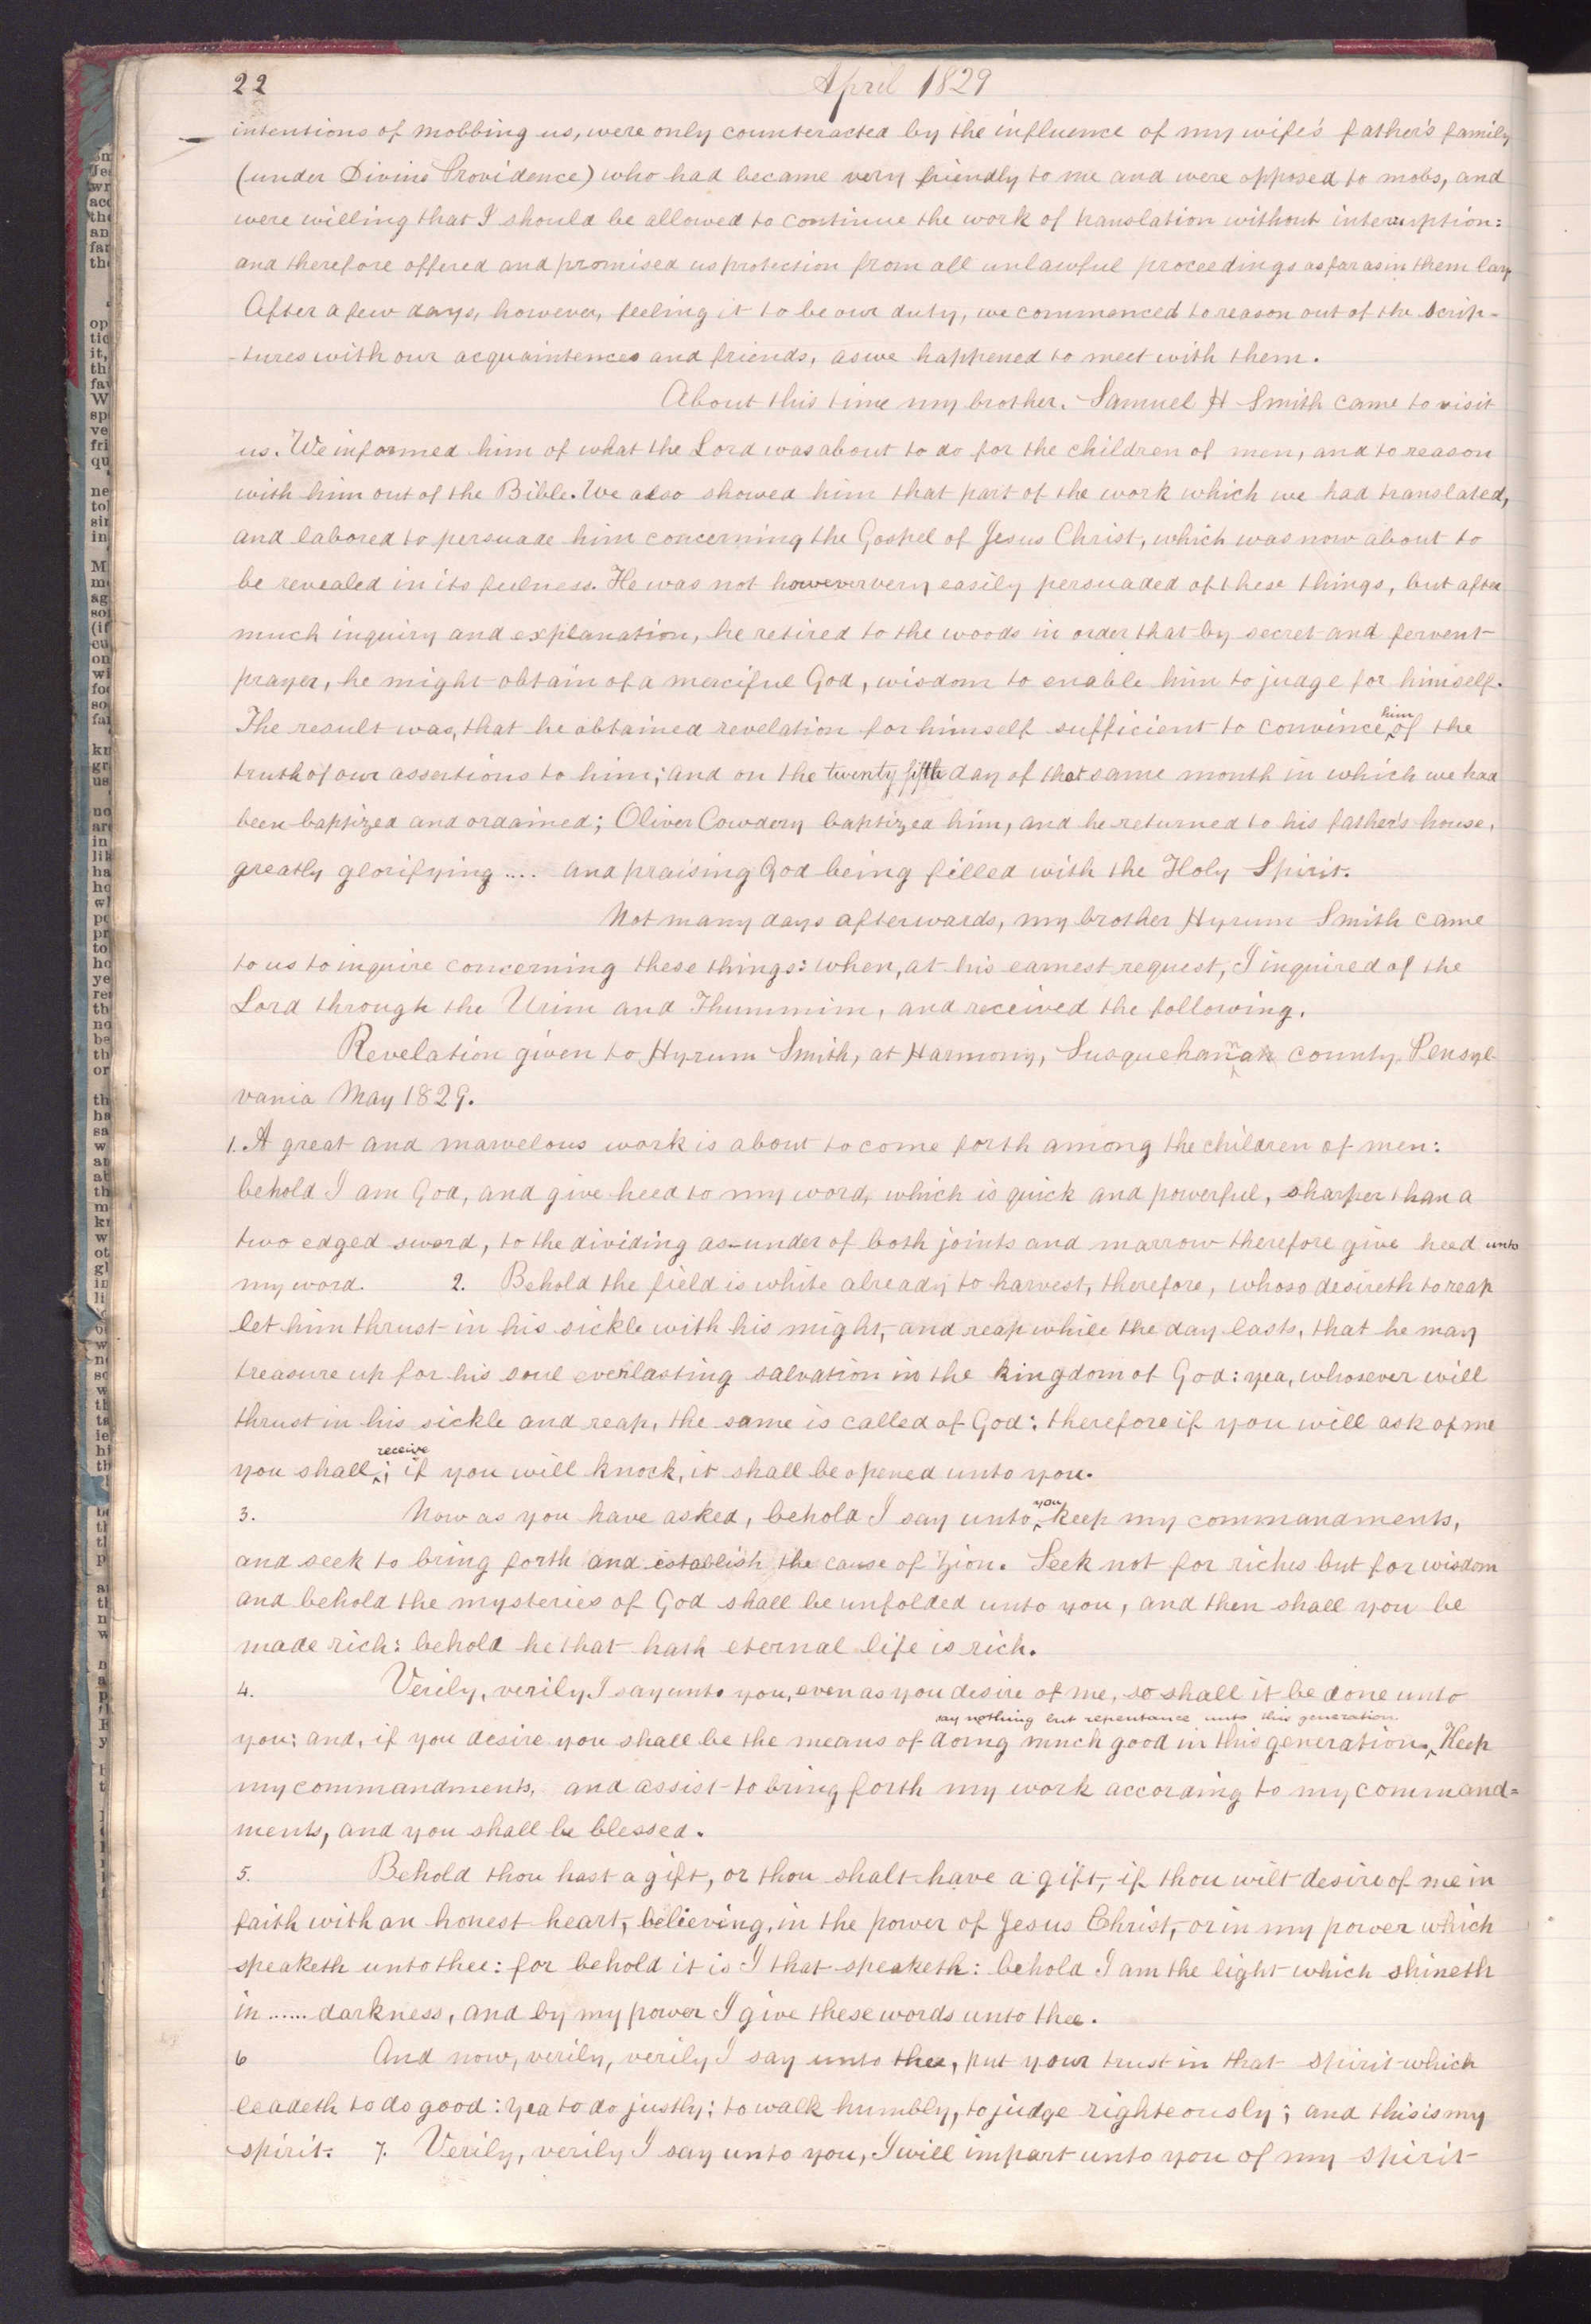 22
April 1829
intentions of mobbing us, were only counteracted by the influence of my wife's father's family
(under Divine Providence) who had became very friendly to me and were opposed to mobs, and
were willing that I should be allowed to continue the work of translation without interruption:
and therefore offered and promised us protection from all unlawful proceedings as far as in them lay
After a few days, however, feeling it to be our duty, we commenced to reason out of the scrip-
-tures with our acquaintences and friends, as we happened to meet with them.
About this time my brother. Samuel H Smith came to visit
us. We informed him of what the Lord was about to do for the children of men, and to reason
with him out of the Bible. We also showed him that part of the work which we had translated,
and labored to persuade him concerning the Gospel of Jesus Christ, which was now about to
be revealed in its fulness. He was not however very easily persuaded of these things, but after
much inquiry and explanation, he retired to the woods in order that by secret and fervent
prayer, he might obtain of a merciful God, wisdom to enable him to judge for himself.
The result was, that he obtained revelation for himself sufficient to convince him of the
truth of our assertions to him; and on the twenty fifth day of that same month in which we had
been baptized and ordained; Oliver Cowdery baptized him, and he returned to his father's house,
greatly glorifying .... and praising God being filled with the Holy Spirit.
Not many days afterwards, my brother Hyrum Smith came
to us to inquire concerning these things: when, at his earnest request, I inquired of the
Lord through the Urim and Thummim, and received the following.
Revelation given to Hyrum Smith, at Harmony, Susquehannah county, Pensyl-
vania May 1829.
1. A great and marvelous work is about to come forth among the children of men:
behold I am God, and give heed to my word, which is quick and powerful, sharper than a
two edged sword, to the dividing as-under of both joints and marrow therefore give heed unto
my word. 2. Behold the field is white already to harvest, therefore, whoso desireth to reap
let him thrust in his sickle with his might, and reap while the day lasts, that he may
treasure up for his soul everlasting salvation in the kingdom of God: yea, whosever will
thrust in his sickle and reap, the same is called of God: therefore if you will ask of me
you shall receive; if you will knock, it shall be opened unto you.
3. Now as you have asked, behold I say unto you keep my commandments,
and seek to bring forth and establish the cause of Zion. Seek not for riches but for wisdom
and behold the mysteries of God shall be unfolded unto you, and then shall you be
made rich: behold he that hath eternal life is rich.
4. Verily, verily I say unto you, even as you desire of me, so shall it be done unto
you: and, if you desire you shall be the means of doing much good in this generation. say nothing but repentance unto this generation. Keep
my commandments, and assist to bring forth my work according to my command=
ments, and you shall be blessed.
5. Behold thou hast a gift, or thou shalt have a gift, if thou wilt desire of me in
faith with an honest heart, believing, in the power of Jesus Christ, or in my power which
speaketh unto thee: for behold it is I that speaketh: behold I am the light which shineth
in ...... darkness, and by my power I give these words unto thee.
6 And now, verily, verily I say unto thee, put your trust in that spirit which
leadeth to do good: yea to do justly; to walk humbly, to judge righteously; and this is my
spirit. 7. Verily, verily I say unto you, I will impart unto you of my spirit